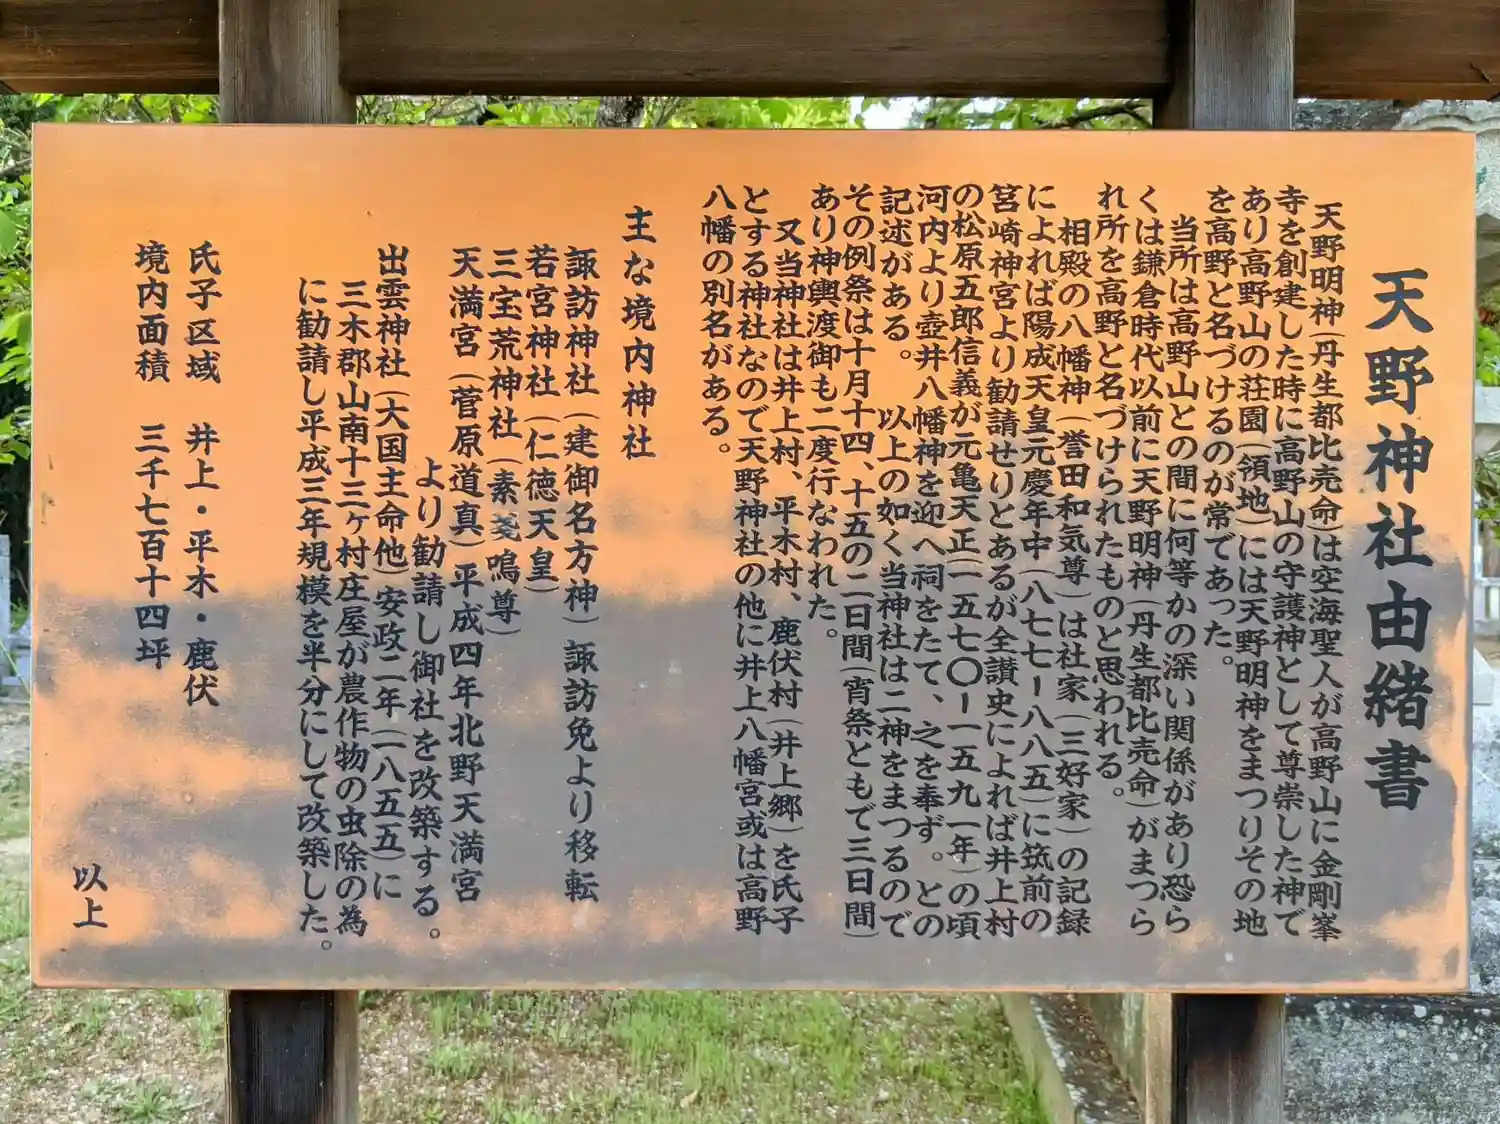 天野神社由緒書
天野明神(丹生都比売命)は空海聖人が高野山に金剛峯
寺を創建した時に高野山の守護神として尊崇した神で
あり高野山の荘園(領地)には天野明神をまつりその地
を高野と名づけるのが常であった。
当所は高野山との間に何等かの深い関係があり恐ら
くは鎌倉時代以前に天野明神(丹生都比売命)がまつら
れ所を高野と名づけられたものと思われる。
相殿の八幡神(誉田和気尊)は社家(三好家)の記録
によれば陽成天皇元慶年中(八七七ー八八五)に筑前の
筥崎神宮より勧請せりとあるが全讃史によれば井上村
の松原五郎信義が元亀天正(一五七〇ー一五九一年)の頃
河内より壺井八幡神を迎へ祠をたて、之を奉ず。との
記述がある。 以上の如く当神社は二神をまつるので
その例祭は十月十四、十五の二日間(宵祭ともで三日間)
あり神輿渡御も二度行なわれた。
又当神社は井上村、平木村、鹿伏村(井上郷)を氏子
とする神社なので天野神社の他に井上八幡宮或は高野
八幡の別名がある。
主な境内神社
諏訪神社(建御名方神)諏訪免より移転
若宮神社(仁徳天皇)
三宝荒神社(素戔嗚尊)
天満宮(菅原道真)平成四年北野天満宮
より勧請し御社を改築する。
出雲神社(大国主命他)安政二年(一八五五)に
三木郡山南十三ヶ村庄屋が農作物の虫除の為
に勧請し平成三年規模を半分にして改築した。
氏子区域 井上・平木・鹿伏
境内面積 三千七百十四坪
以上